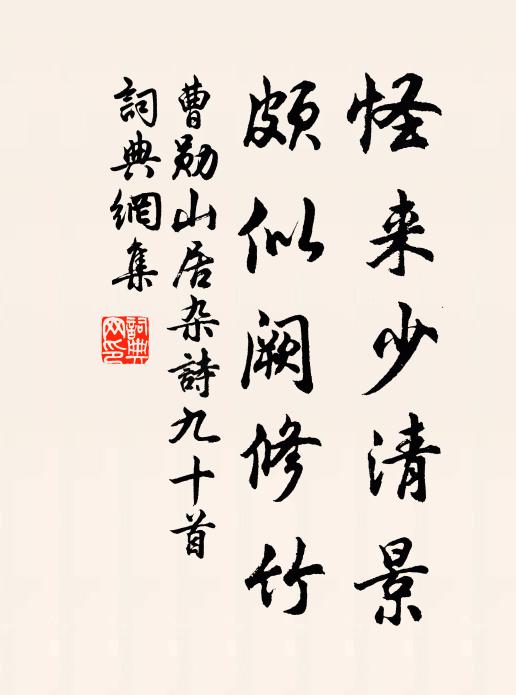 怪来少清景
颇似阙修竹
曹勋山居杂詩九十首
詞典網集
詞典网印